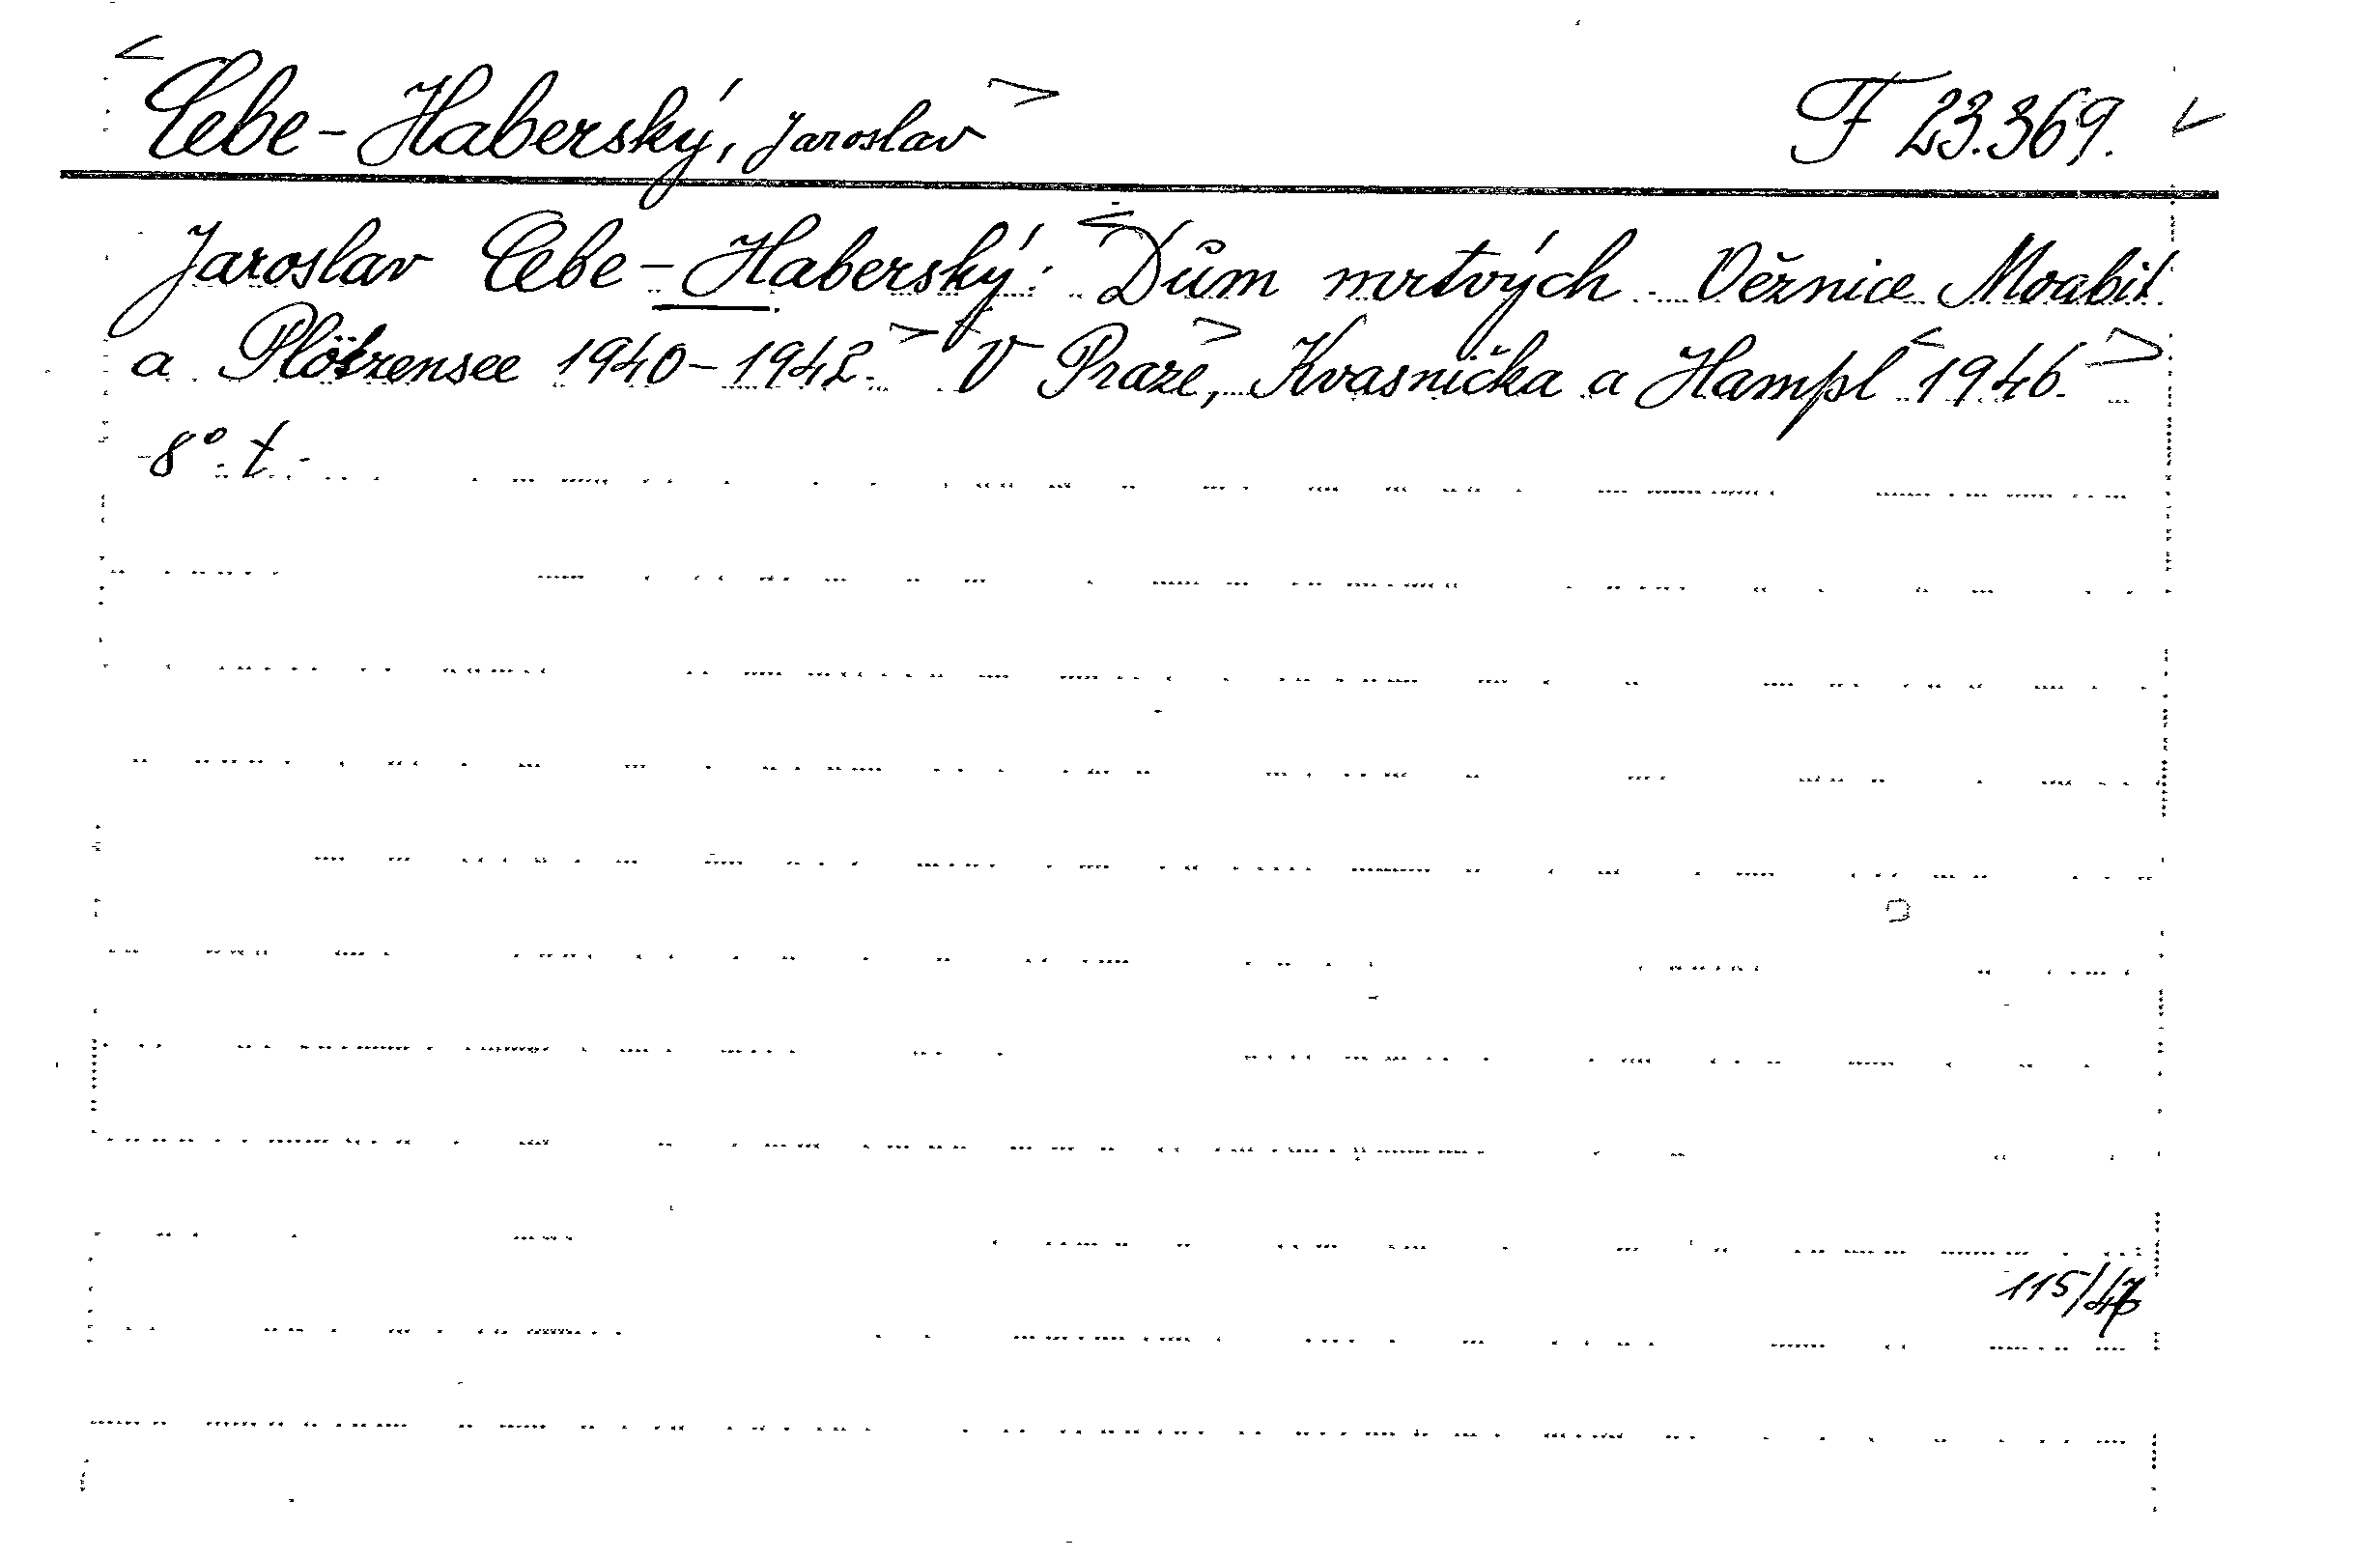 Cebe-Haberský, Jaroslav F 23.369.
Jaroslav Cebe-Haberský: Dům mrtvých. Věznice Moabit
a Plötzensee 1940-1942. V Praze, Kvasnička a Hampl 1946.
8°. t.-
115/47